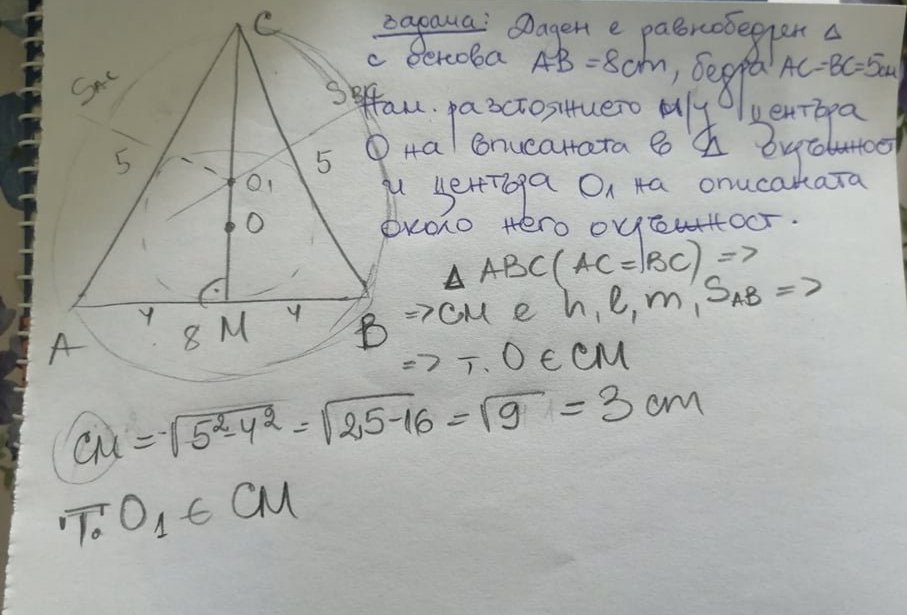 Задача: Даден е равнобедрен Δ
с основа AB = 8cm, бедра AC=BC=5cm
Нам. разстоянието м/у центъра
O на вписаната в Δ окръжност
и центъра O₁ на описаната
около него окръжност.
C
S_AC
S_BC
5
5
O₁
O
4
4
A
8
M
B
Δ ABC (AC = BC) =>
=> CM е h, l, m, S_AB =>
=> т. O ∈ CM
CM = √5²-4² = √25-16 = √9 = 3 cm
Т. O₁ ∈ CM